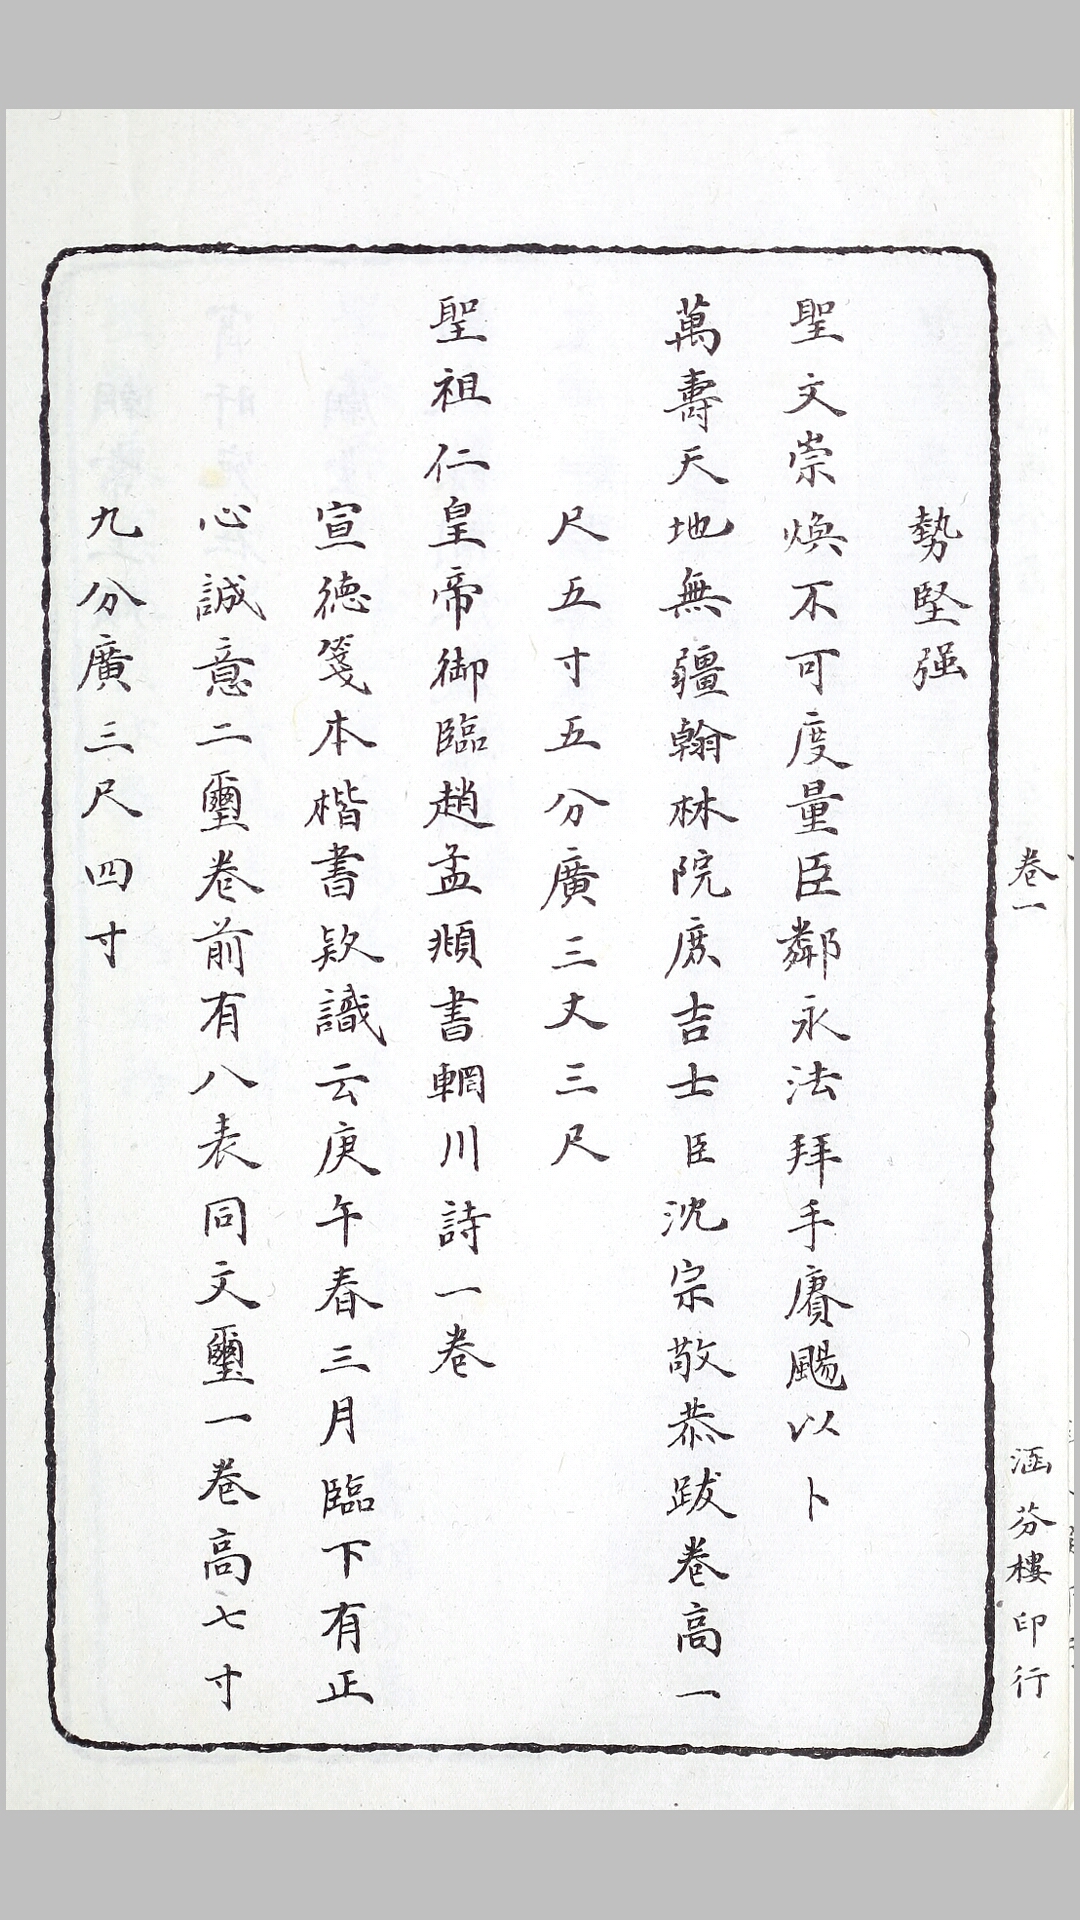 勢堅强
聖文崇煥不可度量臣鄰永法拜手賡颺以卜
萬壽天地無疆翰林院庶吉士臣沈宗敬恭跋卷高一
尺五寸五分廣三丈三尺
聖祖仁皇帝御臨趙孟頫書輞川詩一卷
宣德箋本楷書欵識云庚午春三月臨下有正
心誠意二璽卷前有八表同文璽一卷高七寸
九分廣三尺四寸
卷一
涵芬樓印行